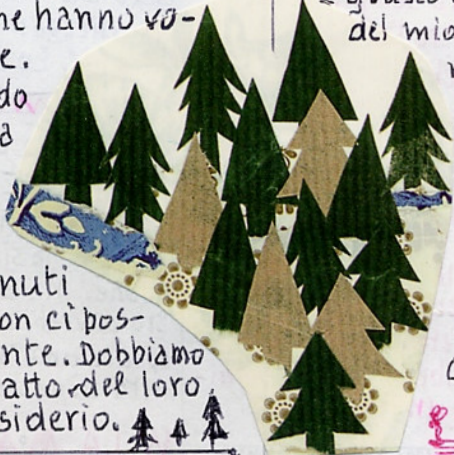 ne hanno vo-
e.
do
a
nuti
on ci pos-
nte. Dobbiamo
atto del loro
siderio.
del mio